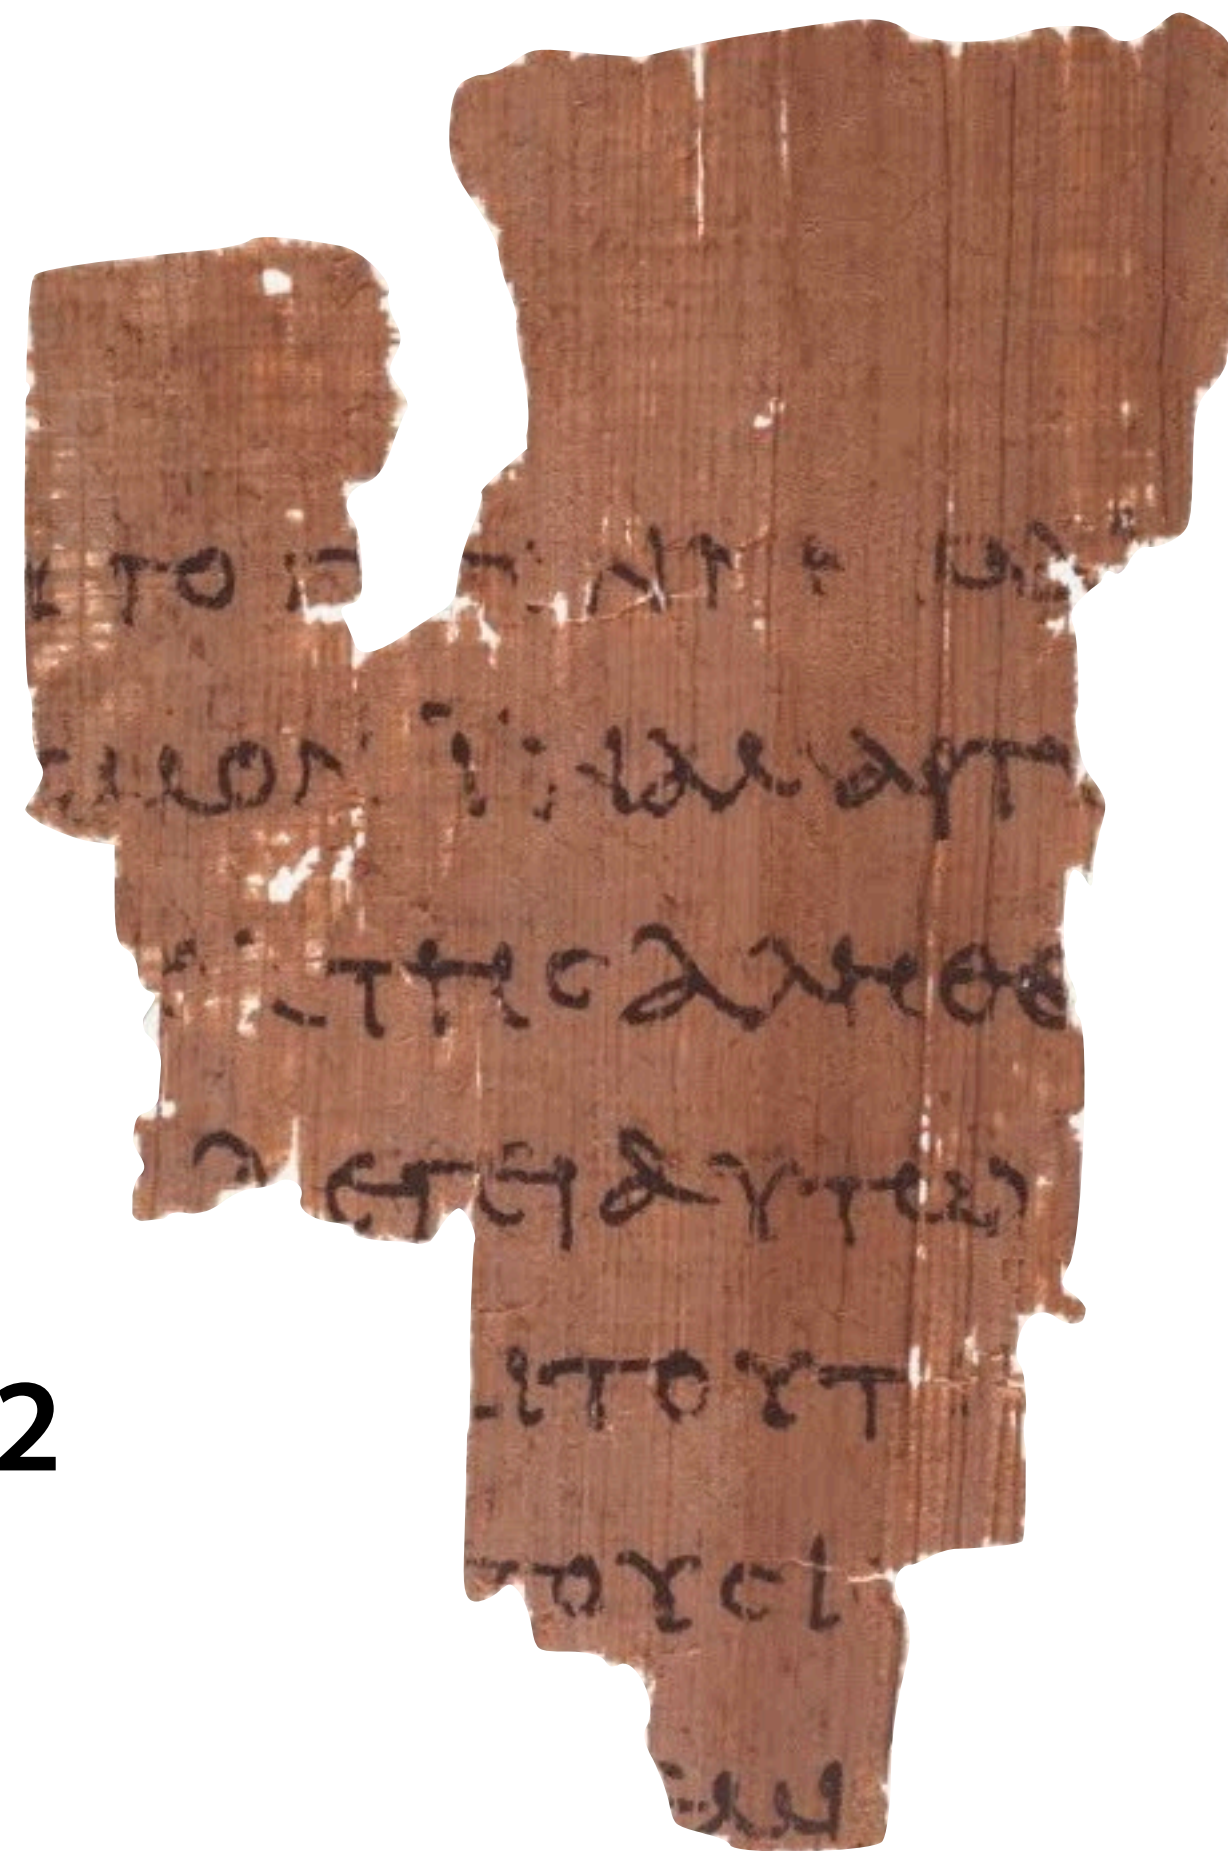 ΥΤΟ Γ ΓΕΝΝΗΜΑΙ
ΣΜΟΝ ΙΝΑ ΜΑΡΤΥ
ΕΚ ΤΗΣ ΑΛΗΘΕ
ΛΕΓΕΙ ΑΥΤΩ
ΑΙ ΤΟΥΤ
2
ΤΟΥΣ Ι
ΕΜΙ